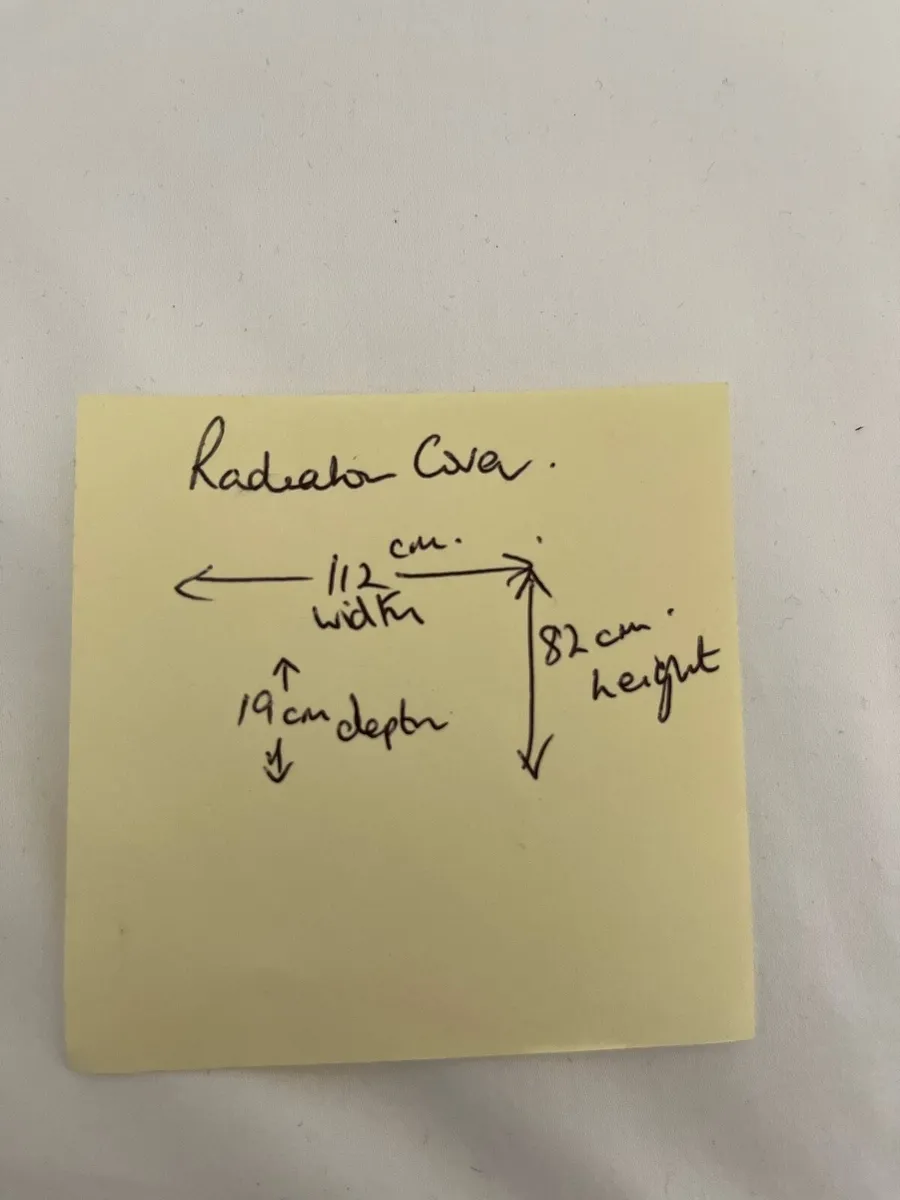 Radiator Cover.
112 cm.
width
82 cm.
height
19 cm depth